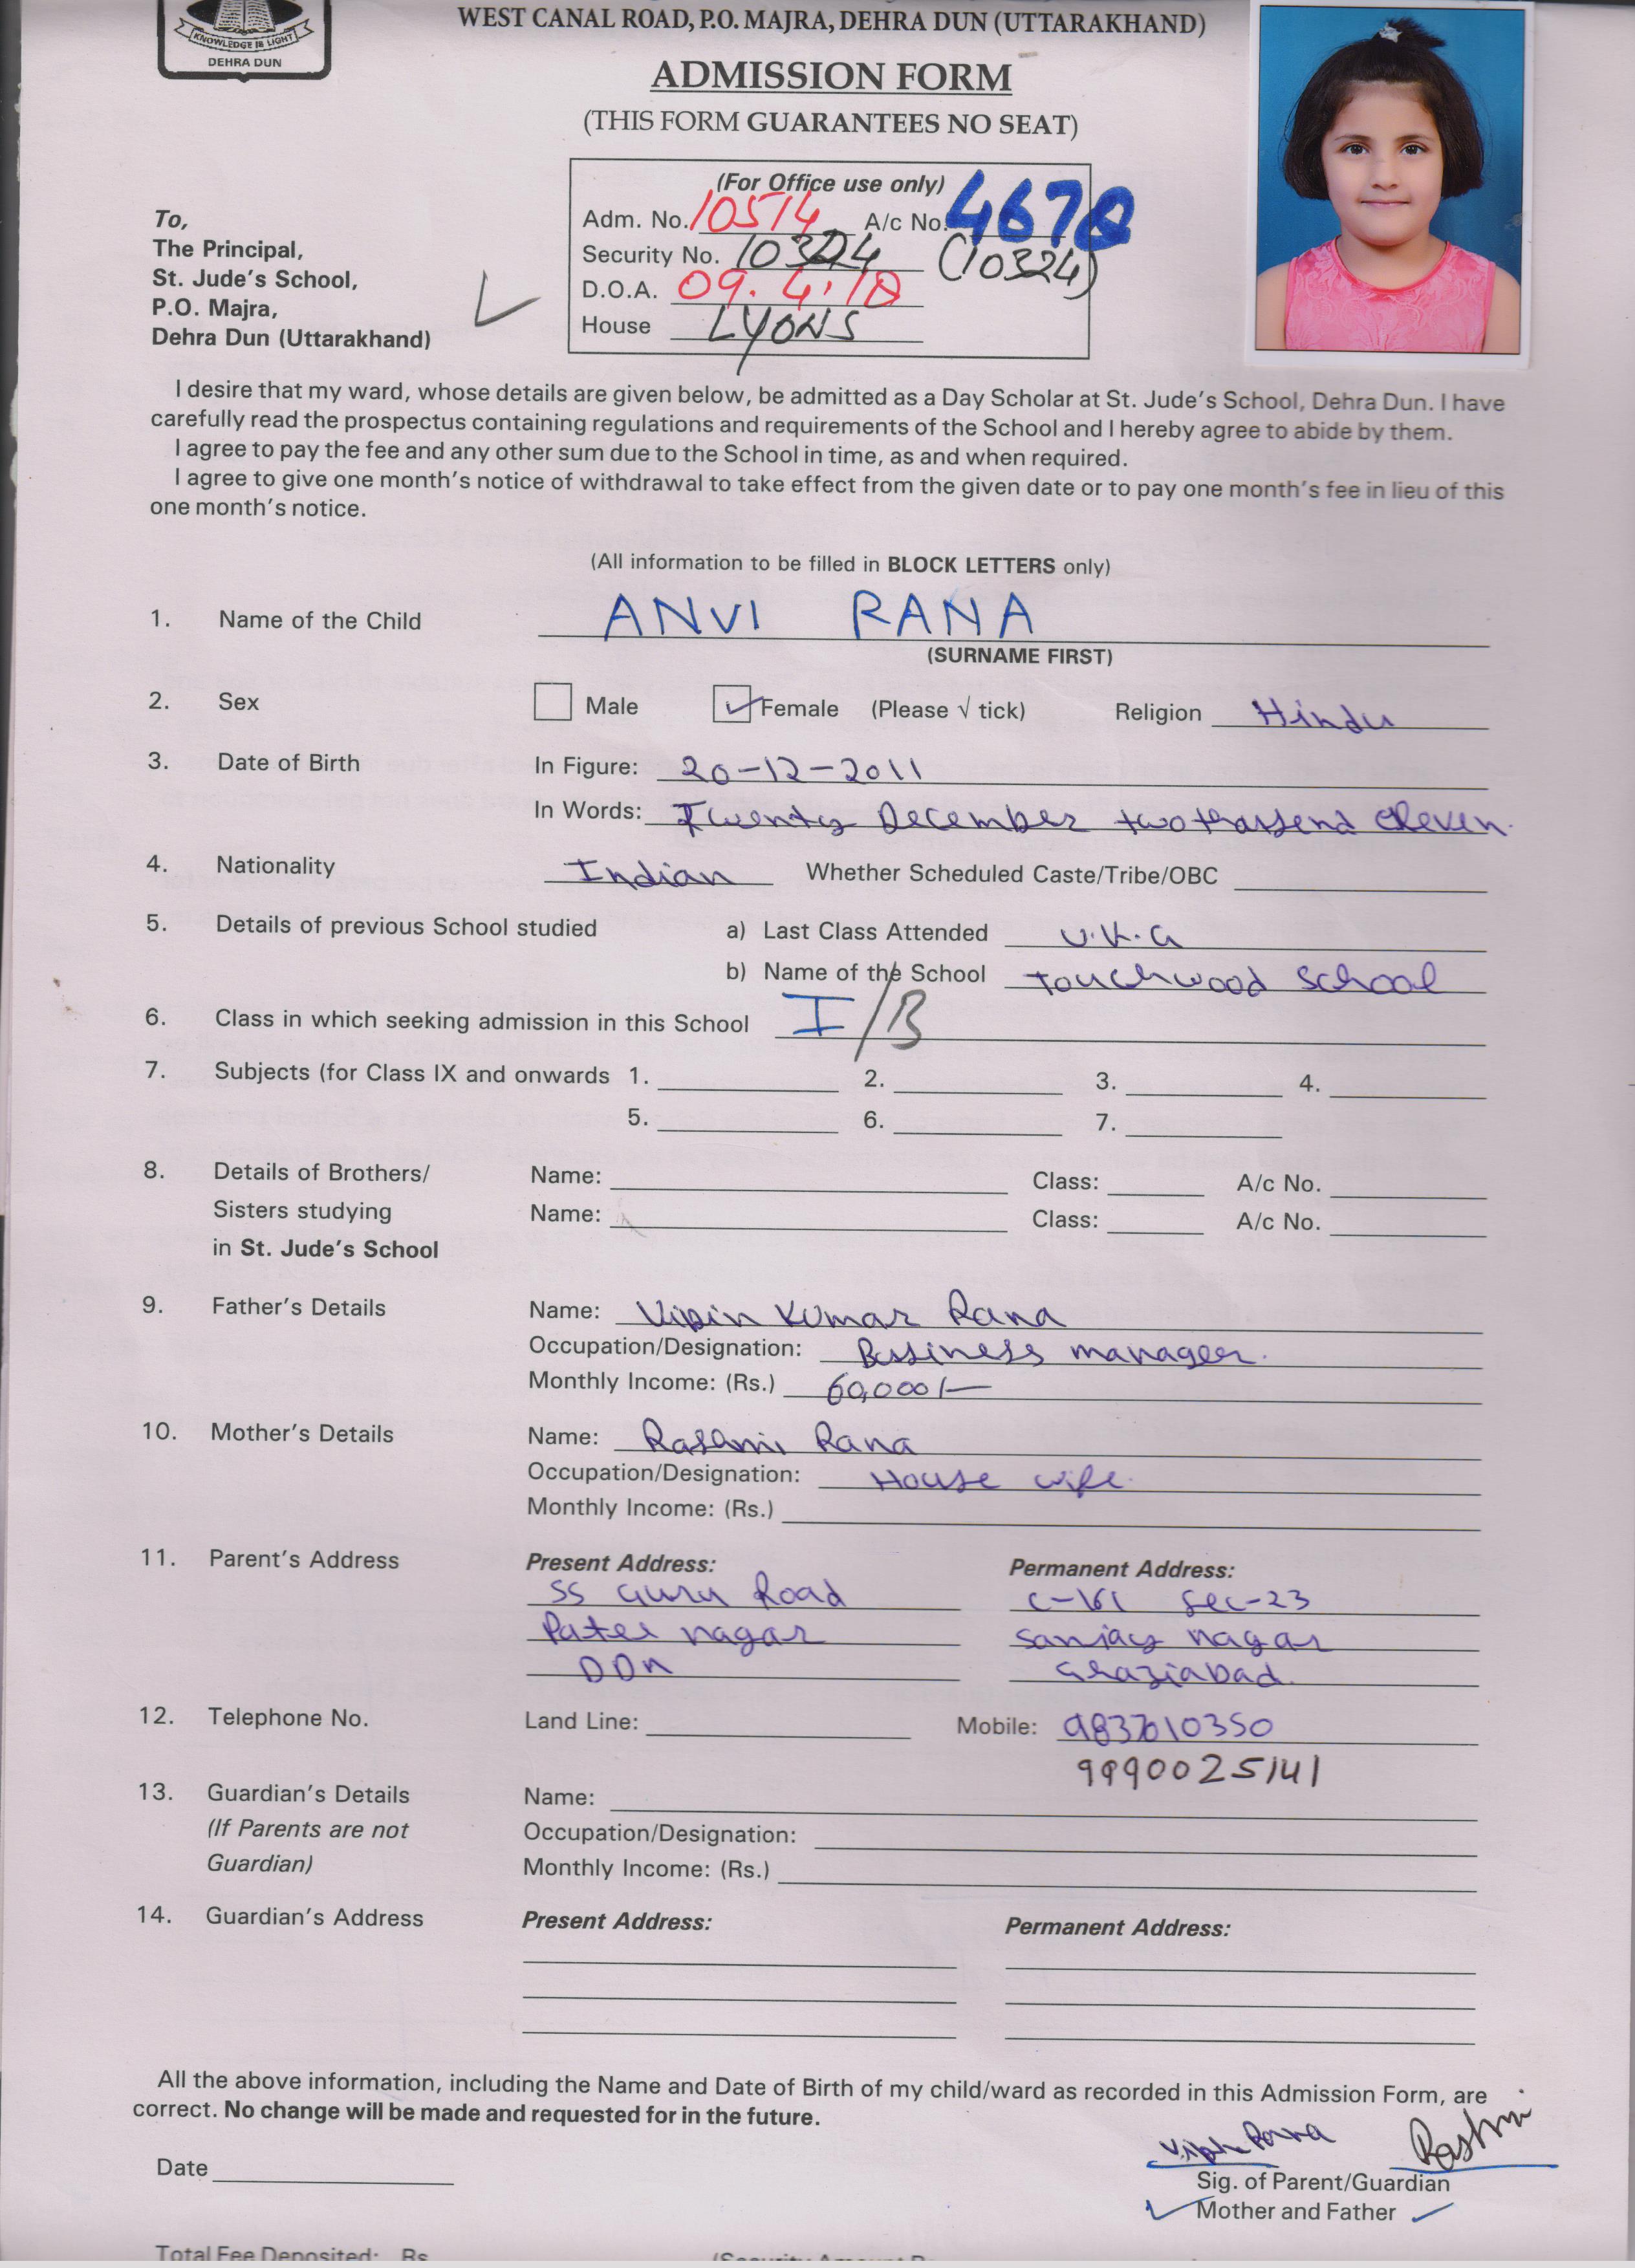 KNOWLEDGE IS LIGHT
DEHRA DUN
WEST CANAL ROAD, P.O. MAJRA, DEHRA DUN (UTTARAKHAND)
ADMISSION FORM
(THIS FORM GUARANTEES NO SEAT)
(For Office use only)
Adm. No. 10514 A/c No. 4678
Security No. 10324 (10324)
D.O.A. 09.4.18
House LYONS
To,
The Principal,
St. Jude's School,
P.O. Majra,
Dehra Dun (Uttarakhand)
I desire that my ward, whose details are given below, be admitted as a Day Scholar at St. Jude's School, Dehra Dun. I have
carefully read the prospectus containing regulations and requirements of the School and I hereby agree to abide by them.
I agree to pay the fee and any other sum due to the School in time, as and when required.
I agree to give one month's notice of withdrawal to take effect from the given date or to pay one month's fee in lieu of this
one month's notice.
(All information to be filled in BLOCK LETTERS only)
1. Name of the Child ANVI RANA
(SURNAME FIRST)
2. Sex Male Female (Please √ tick) Religion Hindu
3. Date of Birth In Figure: 20-12-2011
In Words: Twenty December two thassend eleven.
4. Nationality Indian Whether Scheduled Caste/Tribe/OBC
5. Details of previous School studied a) Last Class Attended U.K.G
b) Name of the School Touchwood School
6. Class in which seeking admission in this School I/B
7. Subjects (for Class IX and onwards 1. 2. 3. 4.
5. 6. 7.
8. Details of Brothers/ Name: Class: A/c No.
Sisters studying Name: Class: A/c No.
in St. Jude's School
9. Father's Details Name: Vipin Kumar Rana
Occupation/Designation: Bussiness manager.
Monthly Income: (Rs.) 60,000/-
10. Mother's Details Name: Rashmi Rana
Occupation/Designation: House wife.
Monthly Income: (Rs.)
11. Parent's Address Present Address: Permanent Address:
SS Guru Road C-161 Sec-23
Patel nagar Sanjay nagar
DDN Ghaziabad.
12. Telephone No. Land Line: Mobile: 9837010350
9990025141
13. Guardian's Details Name:
(If Parents are not Occupation/Designation:
Guardian) Monthly Income: (Rs.)
14. Guardian's Address Present Address: Permanent Address:
All the above information, including the Name and Date of Birth of my child/ward as recorded in this Admission Form, are
correct. No change will be made and requested for in the future.
Vipin Rana Rashmi
Date
Sig. of Parent/Guardian
Mother and Father
Total Fee Deposited: Rs.